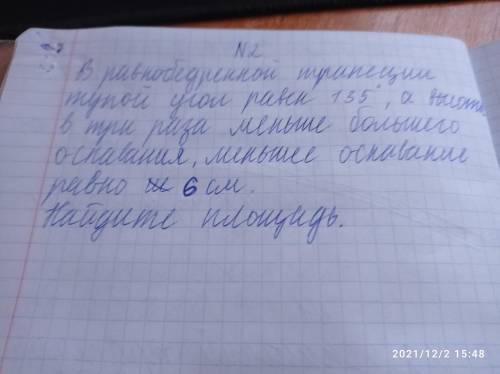 N2
В равнобедренной трапеции
тупой угол равен 135°, а высота
в три раза меньше большего
основания, меньшее основание
равно 6 см.
Найдите площадь.
2021/12/2 15:48